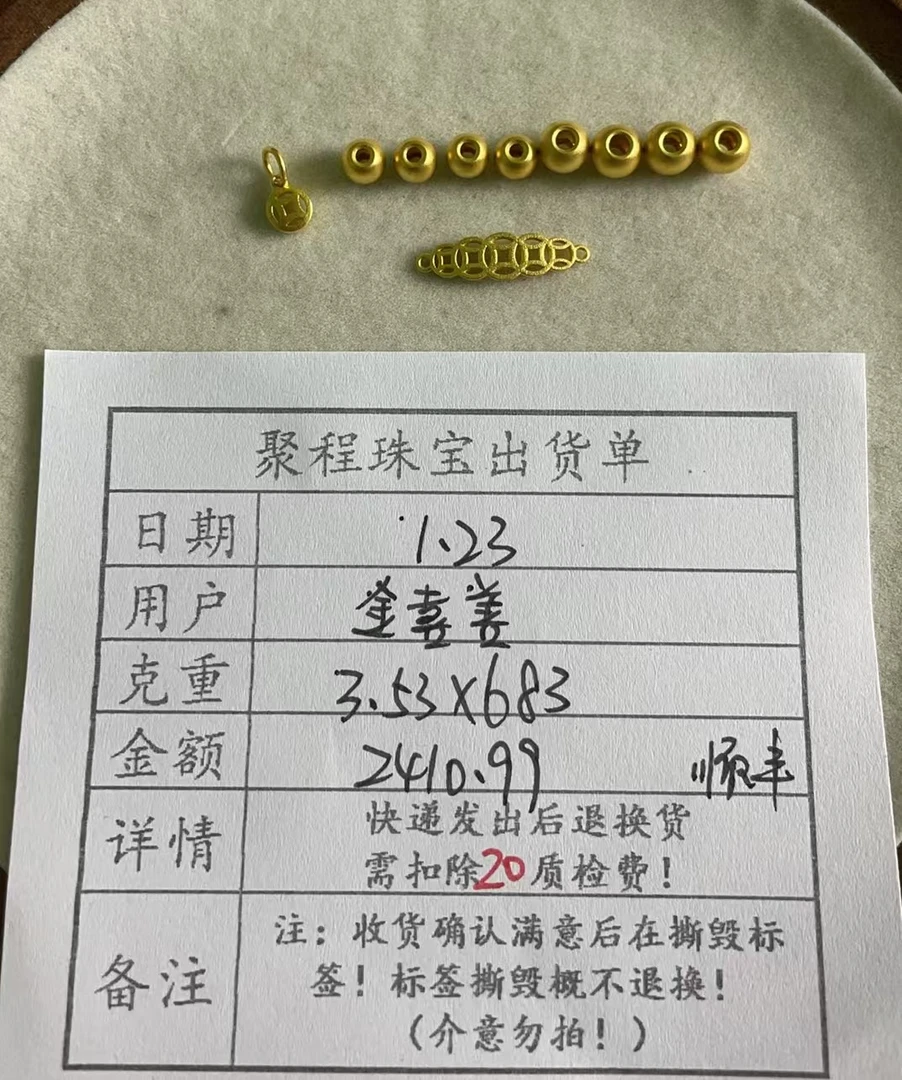 聚程珠宝出货单
日期 1.23
用户 金喜善
克重 3.53×683
金额 2410.99 顺丰
详情 快递发出后退换货
需扣除20质检费！
备注 注：收货确认满意后在撕毁标
签！标签撕毁概不退换！
（介意勿拍！）